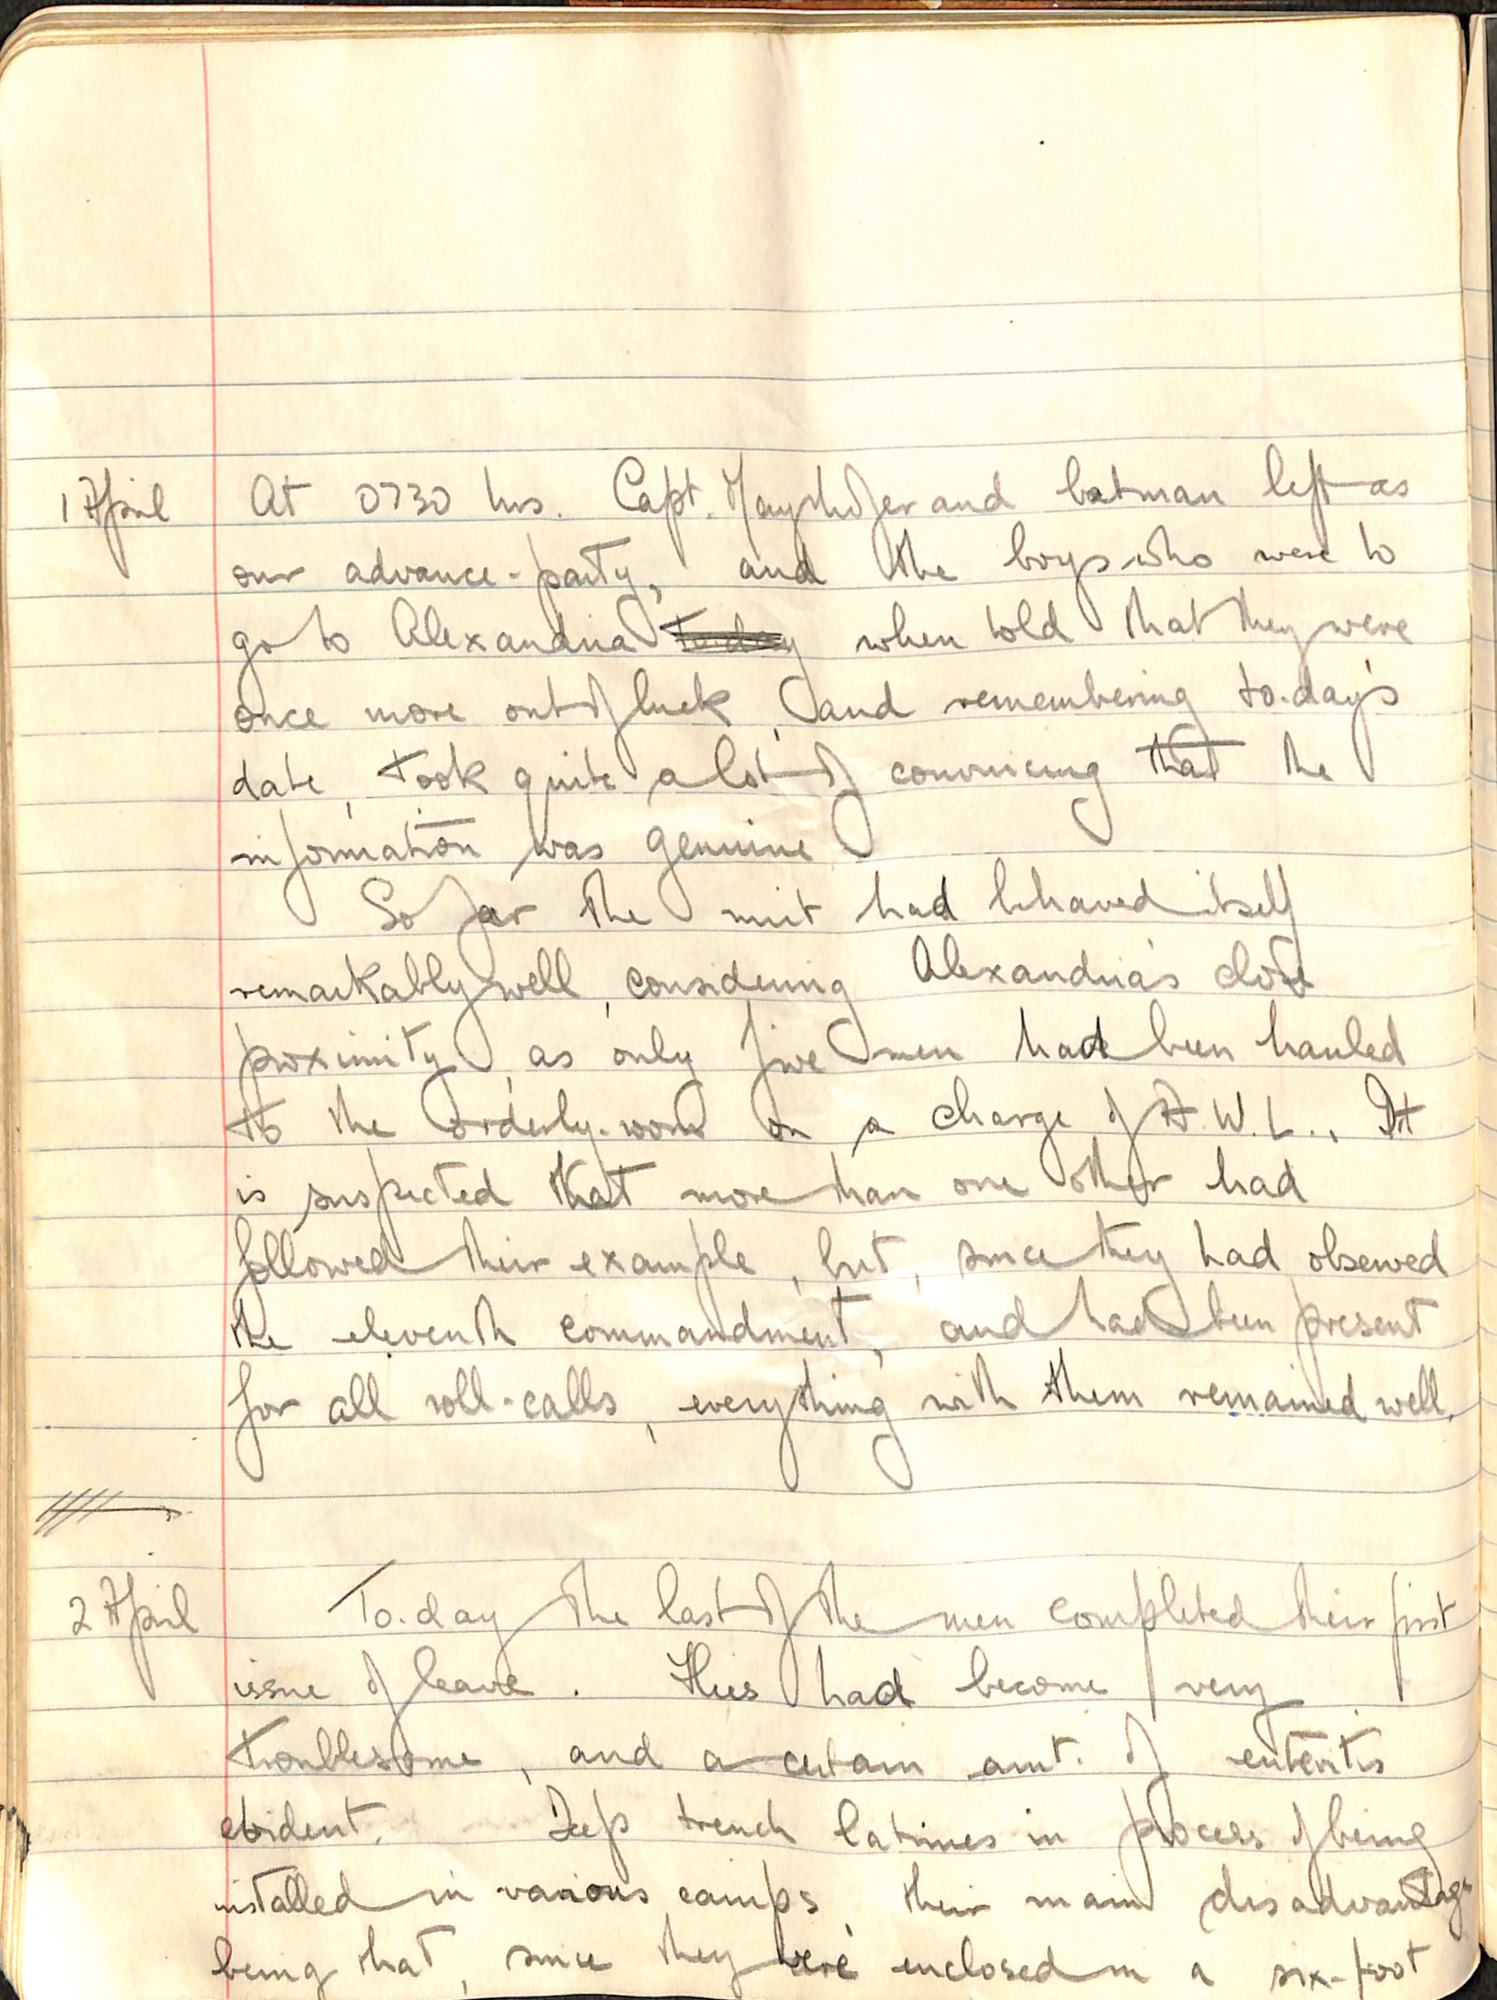 1 April At 0730 hrs. Capt. Mayrhofer and batman left as
our advance-party, and the boys who were to
go to Alexandria to-day when told that they were
once more out of luck, and remembering to-day's
date, took quite a lot of convincing that the
information was genuine
So far the unit had behaved itself
remarkably well, considering Alexandria's close
proximity, as only five men had been hauled
to the orderly-room on a charge of A.W.L., It
is suspected that more than one other had
followed their example, but, since they had observed
the eleventh commandment, and had been present
for all roll-calls, everything with them remained well.
2 April To-day the last of the men completed their first
issue of leave. This had become very
troublesome, and a certain amt. of enteritis
evident. Deep trench latrines in process of being
installed in various camps, their main disadvantage
being that, since they were enclosed in a six-foot